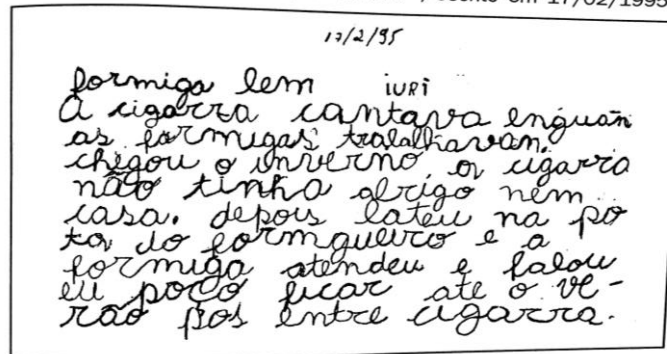 escrito em 17/02/1995
17/2/95
formiga lem iuri
A cigarra cantava enguan
as formigas tralalhavam.
chegou o inverno a cigarra
não tinha abrigo nem
casa. depois lateu na po
ta do formgueiro e a
formiga atendeu e falou
eu poço ficar ate o ve-
rão pos entre cigarra.